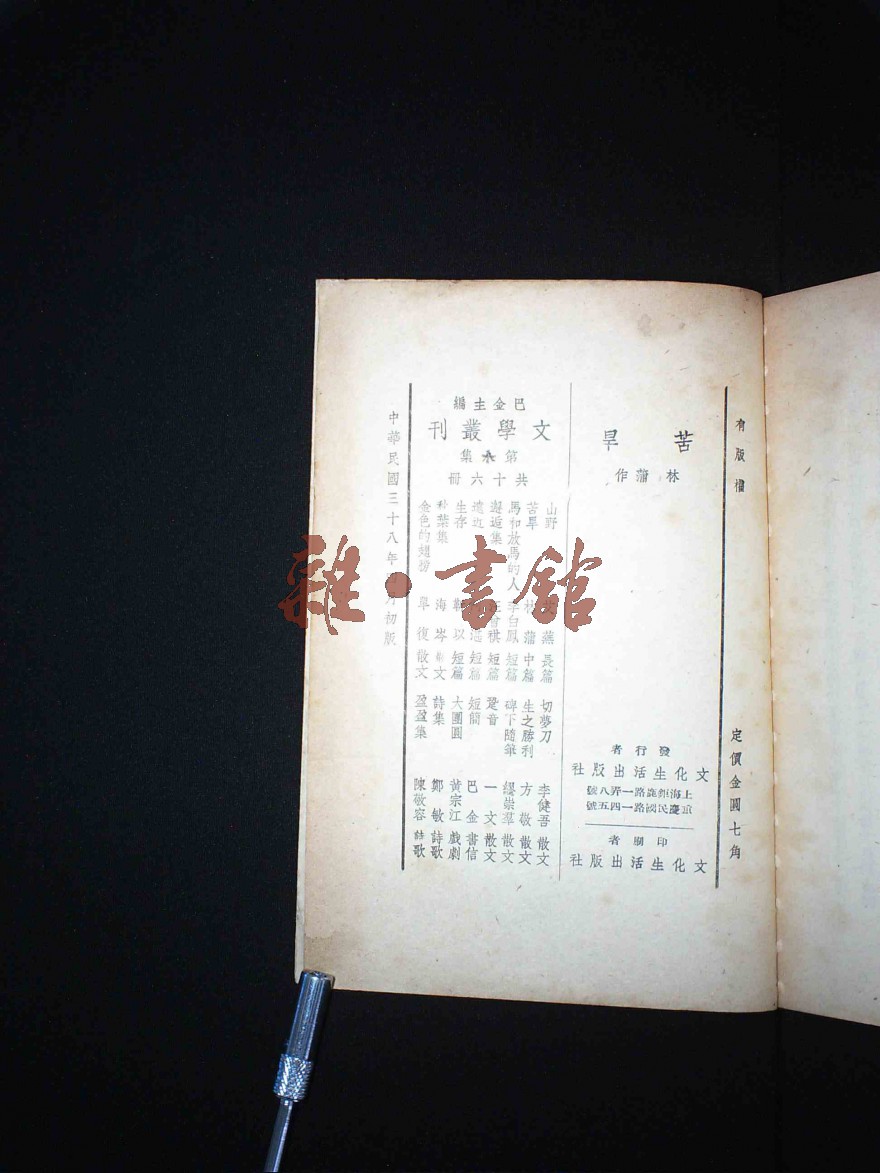 有版權
定價金圓七角
苦旱
林蒲作
發行者
文化生活出版社
上海鉅鹿路一弄八號
重慶民國路一四五號
印刷者
文化生活出版社
巴金主編
文學叢刊
第集
共十六冊
山野 燕 長篇
苦旱 林蒲 中篇
馬和放馬的人 李白鳳 短篇
邂逅集 汪曾祺 短篇
短篇
生存 靳以 短篇
秋葉集 海岑 散文
金色的翅膀 單復 散文
切夢刀 李健吾 散文
生之勝利 方敬 散文
碑下隨筆 繆崇羣 散文
跫音 一文 散文
短簡 巴金 書信
大團圓 黃宗江 戲劇
詩集 鄭敏 詩歌
盈盈集 陳敬容 詩歌
中華民國三十八年月初版
雜·書館